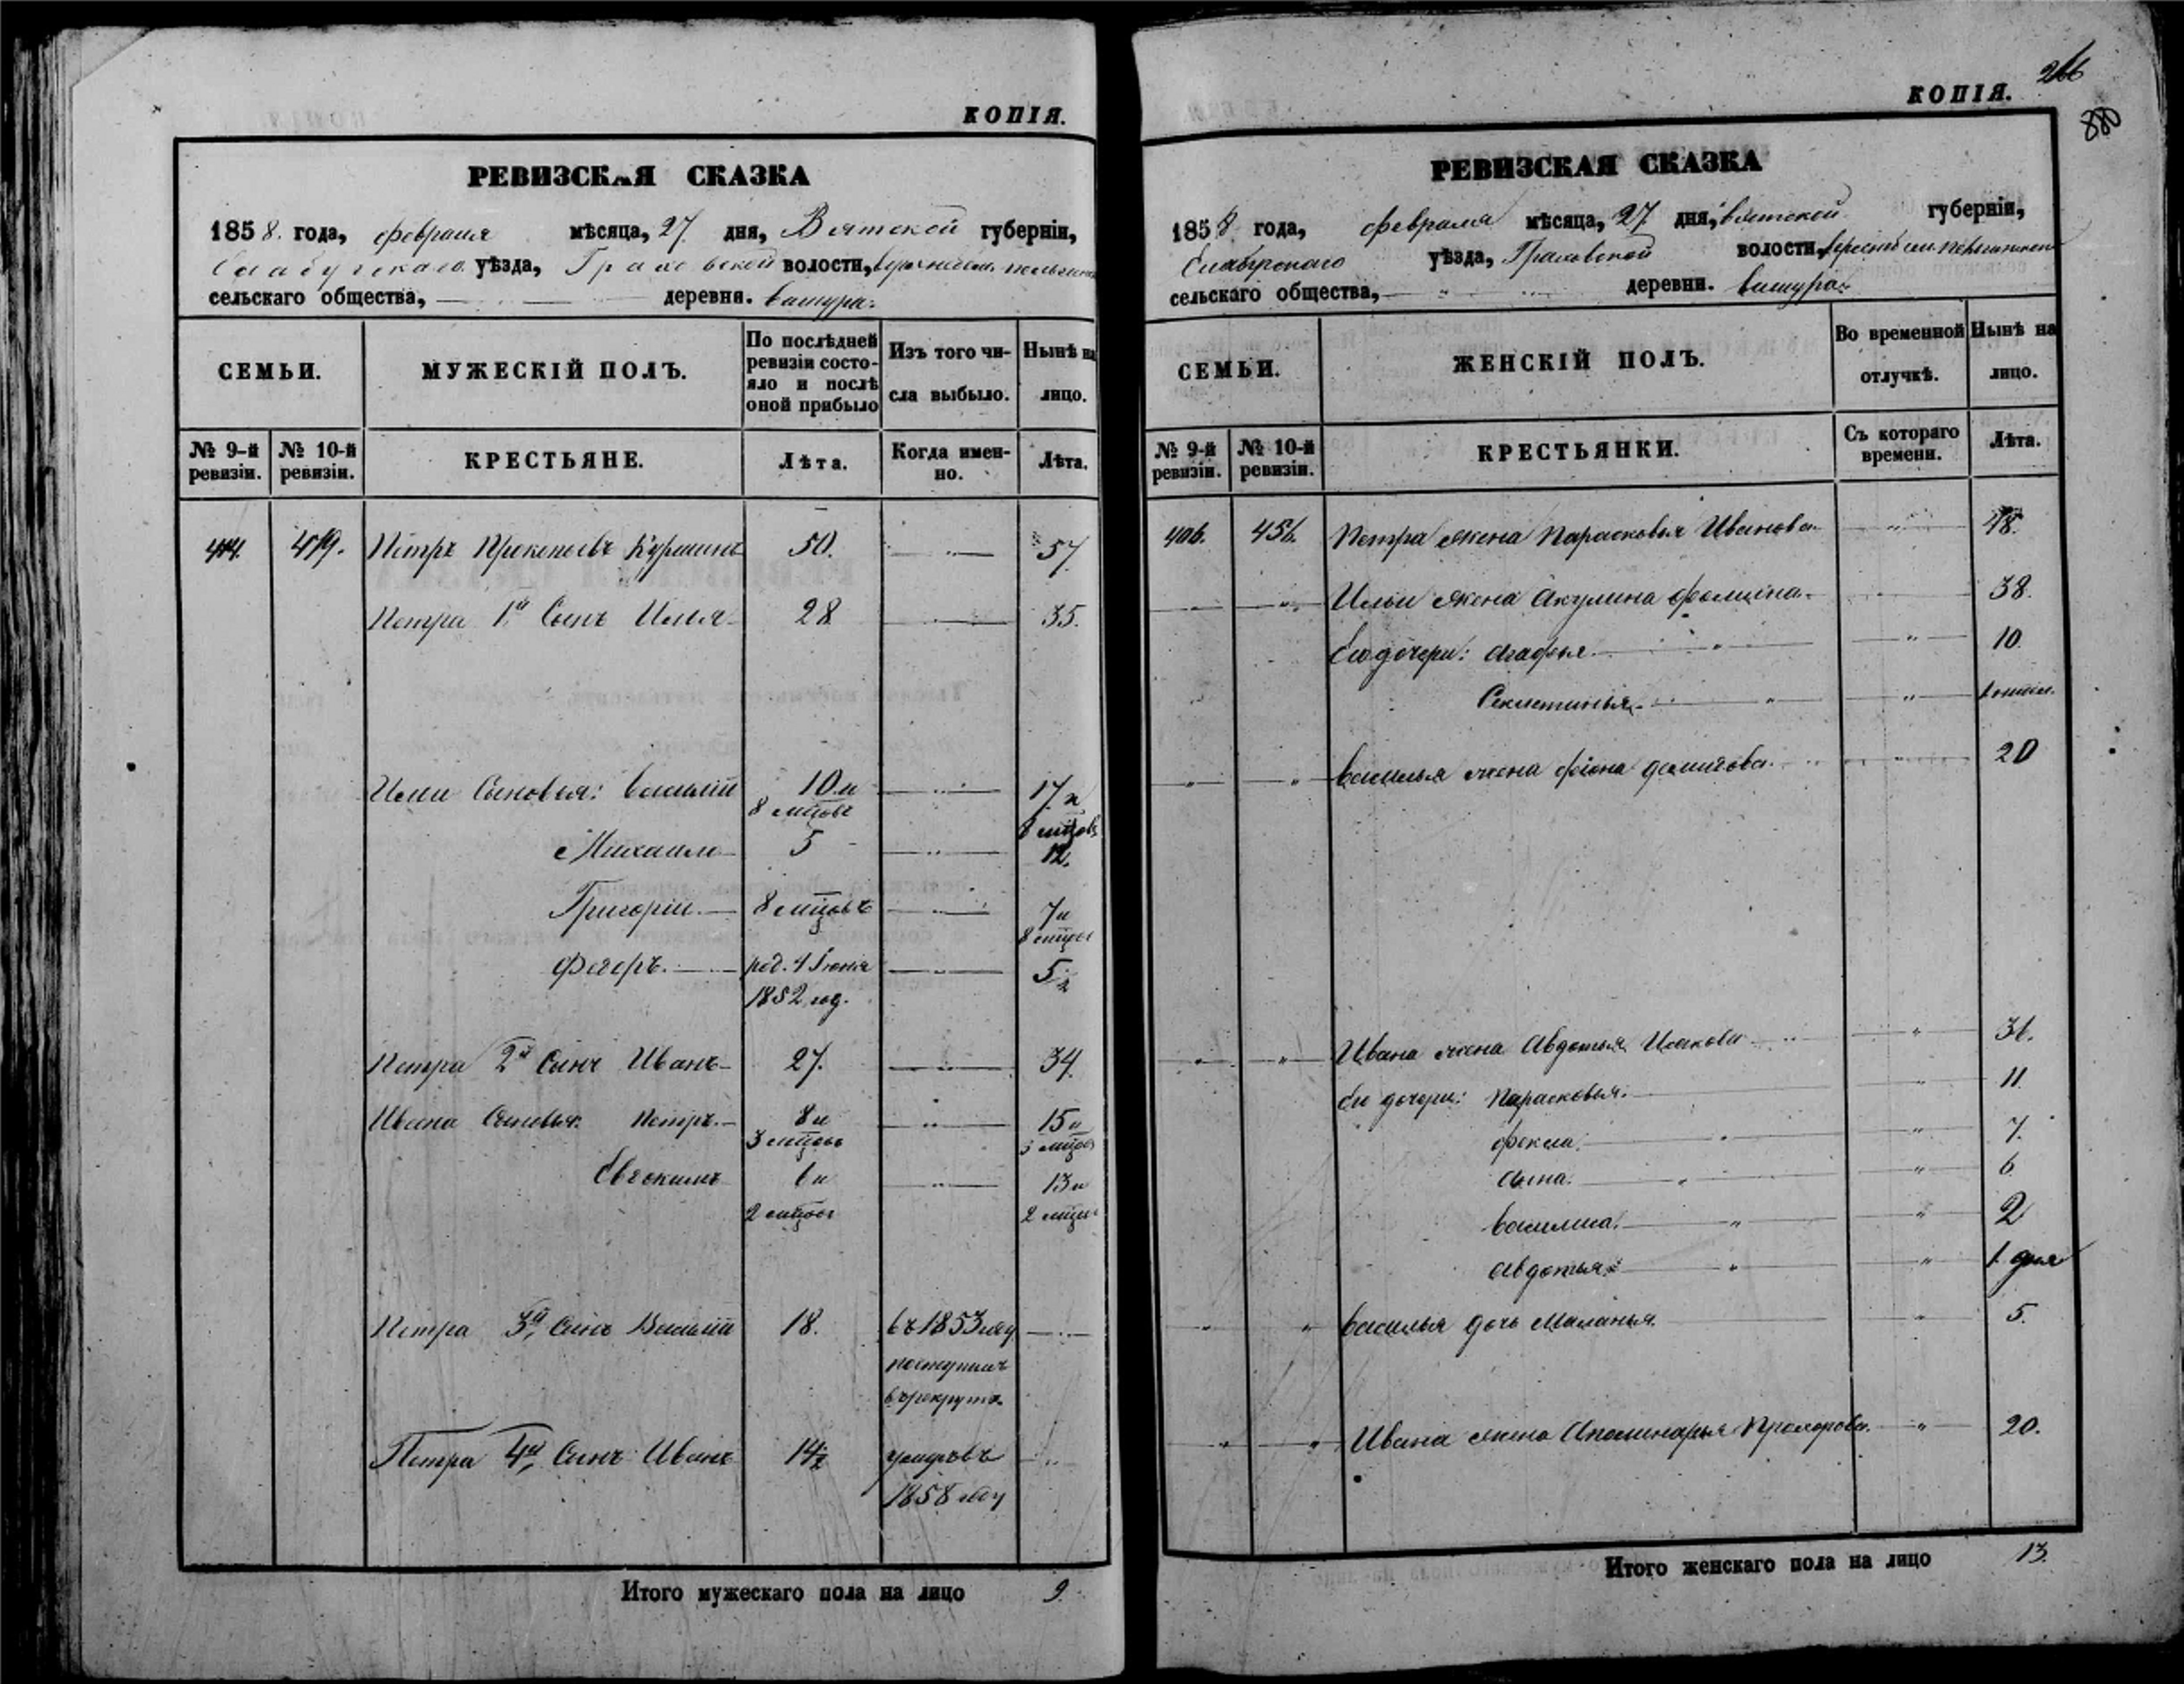 КОПІЯ.
РЕВИЗСКАЯ СКАЗКА
1858. года, февраля мѣсяца, 27 дня, Вятской губерніи,
Елабугскаго уѣзда, Граховской волости,
сельскаго общества, — деревни.
СЕМЬИ.
МУЖЕСКІЙ ПОЛЪ.
По послѣдней ревизіи состо-
яло и послѣ
оной прибыло
Изъ того чи-
сла выбыло.
Нынѣ на
лицо.
№ 9-й ревизіи.
№ 10-й ревизіи.
КРЕСТЬЯНЕ.
Лѣта.
Когда имен-
но.
Лѣта.
Петръ Прокопьевъ 50. — „ — 57
Петра 1й Сынъ Илья 28 — „ — 35.
Ильи Сыновья: Василій 10 и 8 мцовъ — „ — 17 и 8 мцовъ
Михаило 5 — „ — 12.
Григорій 8 мцовъ — „ — 7 и 8 мцовъ
Федоръ. род. 4 Іюня 1852 год. — „ — 5½
Петра 2й Сынъ Иванъ 27. — „ — 34
Ивана Сыновья: Петръ 8 и 3 мцовъ — „ — 15 и 3 мцовъ
Евдокимъ 6 и 2 мцовъ — „ — 13 и 2 мцовъ
Петра 3й Сынъ Василій 18. въ 1853 году поступилъ в рекруты — „ —
Петра 4й Сынъ Иванъ 14½ 1858 году „
Итого мужескаго пола на лицо 9.
266
КОПІЯ.
880
РЕВИЗСКАЯ СКАЗКА
1858 года, февраля мѣсяца, 27 дня, вятской губерніи,
Елабугскаго уѣзда, Граховской волости,
сельскаго общества, — „ деревни.
СЕМЬИ.
ЖЕНСКІЙ ПОЛЪ.
Во временной
отлучкѣ.
Нынѣ на
лицо.
№ 9-й ревизіи.
№ 10-й ревизіи.
КРЕСТЬЯНКИ.
Съ котораго
времени.
Лѣта.
406. 456. Петра жена Парасковья Иванова — „ — 48.
Ильи жена Акулина 38.
Его дочери: Агафья 10.
Секлетинья
Василья жена 20
Ивана жена Авдотья 31.
Его дочери: Парасковья. 11
Фекла. 7.
Анна. 6
Василиса. 2
Авдотья. 1 дня
Василья дочь Маланья. 5.
Ивана жена Апалинарья Прохорова. 20.
Итого женскаго пола на лицо 13.